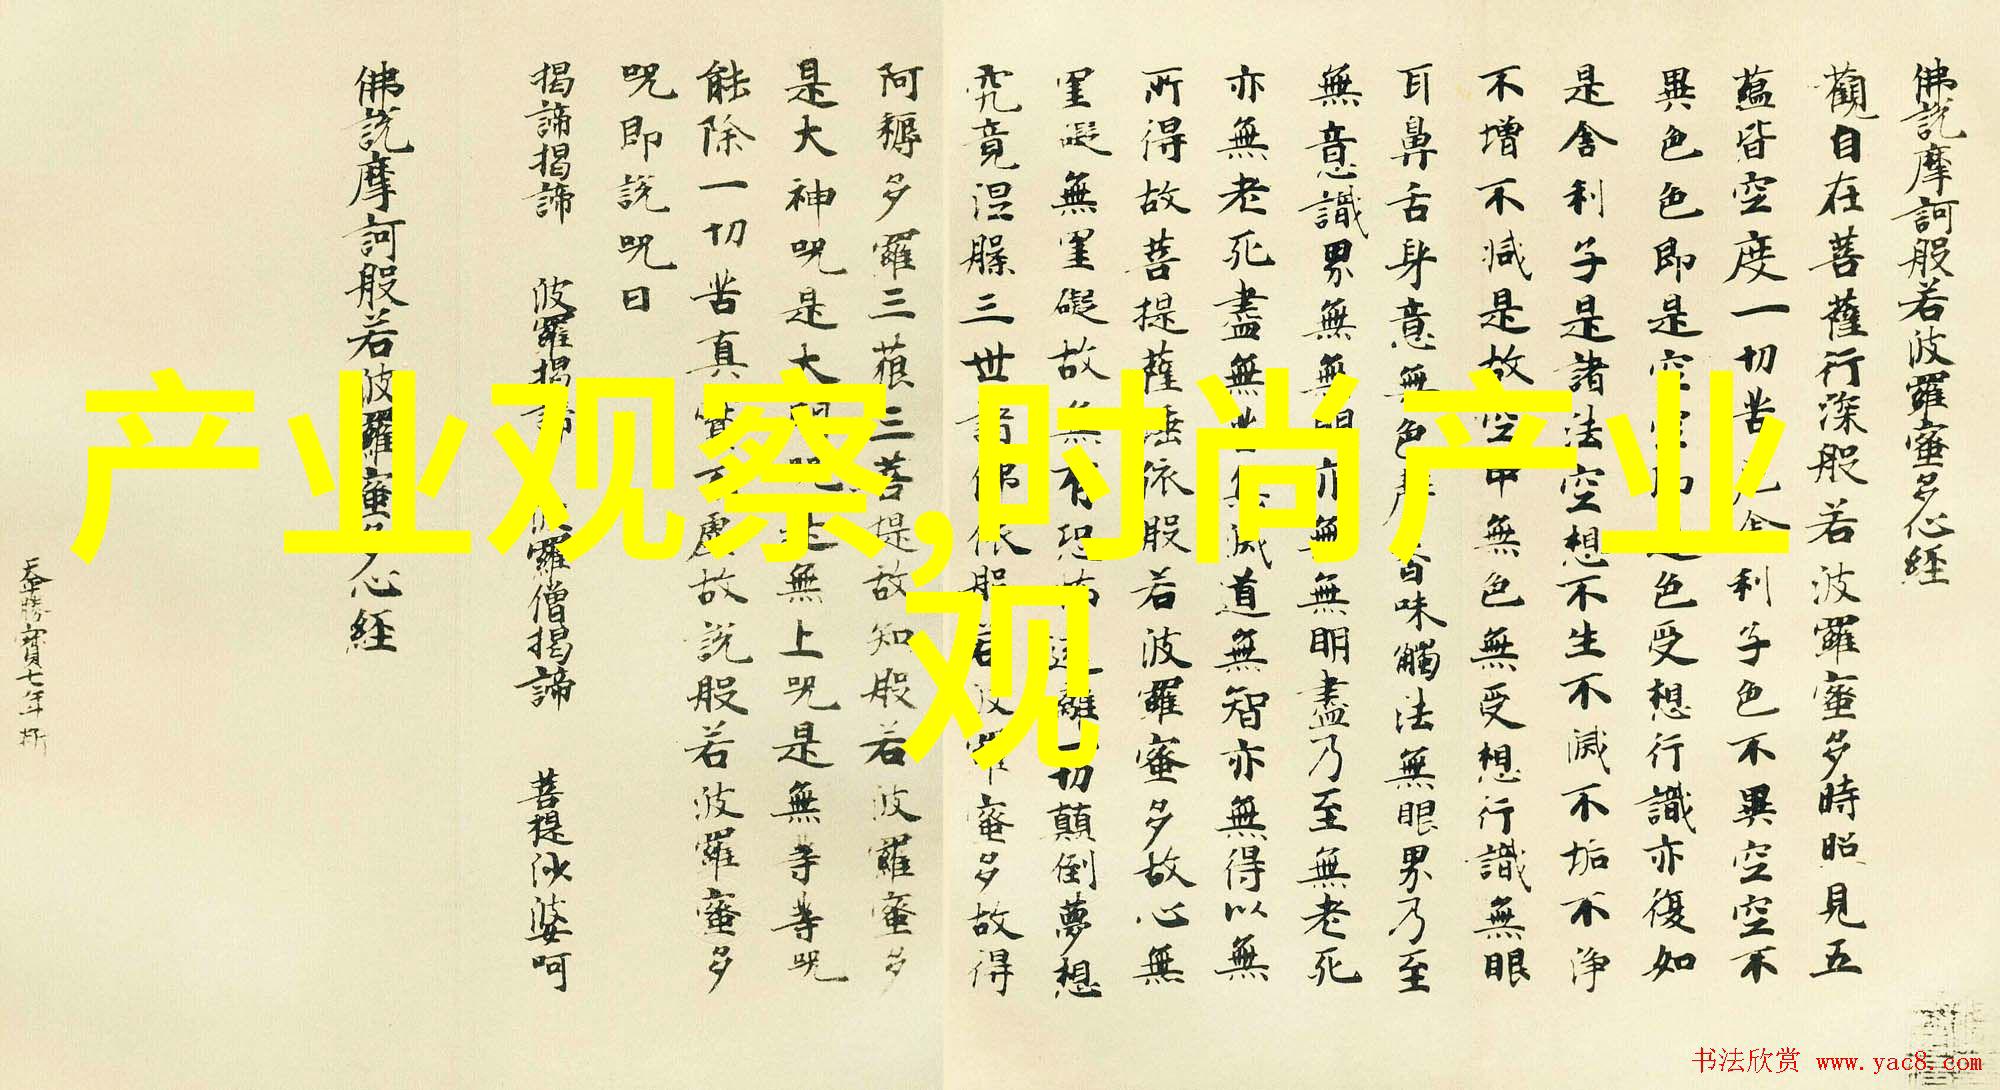 产业观察,时尚产业
观
佛說摩訶般若波羅蜜多心経
觀自在菩薩行深般若波羅蜜多時照見五
蘊皆空度一切苦厄舍利子色不異空空不
異色色即是空空即是色受想行識亦復如
是舍利子是諸法空想不生不滅不垢不浄
不增不減是故空中無色無受想行識無眼
耳鼻舌身意無色聲香味觸法無眼界乃至
無意識界無無明亦無無明盡乃至無老死
亦無老死盡無苦集滅道無智亦無得以無
所得故菩提薩埵依般若波羅蜜多故心無
罣礙無罣礙故無有恐怖遠離一切顛倒夢想
究竟涅槃三世諸佛依般若波羅蜜多故得
阿耨多羅三藐三菩提故知般若波羅蜜多
是大神呪是大明呪是無上呪是無等等呪
能除一切苦真實不虛故說般若波羅蜜多
呪即說呪曰
揭諦揭諦 波羅揭諦 波羅僧揭諦 菩提沙婆呵
佛說摩訶般若波羅蜜多心経
勝寶七年
书法欣赏 www.yac8.com